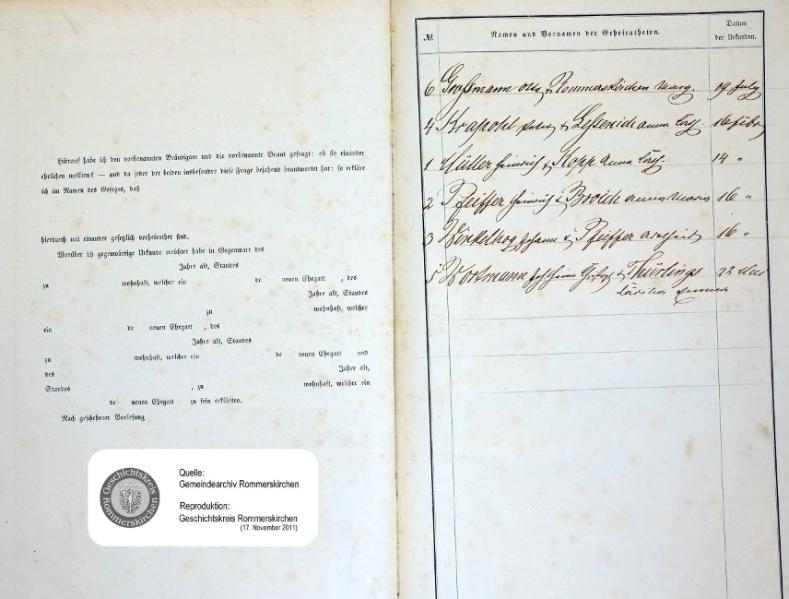 Hierauf habe ich den vorbenannten Bräutigam und die vorbenannte Braut gefragt: ob sie einander
ehelichen wollten? — und da jeder der beiden insbesondere diese Frage bejahend beantwortet hat: so erkläre
ich im Namen des Gesetzes, daß
hierdurch mit einander gesetzlich verheirathet sind.
Worüber ich gegenwärtige Urkunde errichtet habe in Gegenwart des
Jahre alt, Standes
zu wohnhaft, welcher ein de neuen Ehegatt , des
Jahre alt, Standes
zu wohnhaft, welcher
ein de neuen Ehegatt , des
Jahre alt, Standes
zu wohnhaft, welcher ein de neuen Ehegatt und
des Jahre alt,
Standes , zu wohnhaft, welcher ein
de neuen Ehegatt zu sein erklärten.
Nach geschehener Vorlesung
Geschichtskreis
Rommerskirchen
Quelle:
Gemeindearchiv Rommerskirchen
Reproduktion:
Geschichtskreis Rommerskirchen
(17. November 2011)
№ Namen und Vornamen der Geheiratheten. Datum
der Urkunden.
6 Graßmann Otto & Rommerskirchen Marg. 19 July
4 Krapohl Peter & Anna 16 Febr
1 Müller Heinrich & Kopp Anna 14 "
2 Pfeiffer Heinrich & Anna Maria 16 "
3 Johann & Pfeiffer 16 "
5 Wortmann & Thürlings 22 Mai